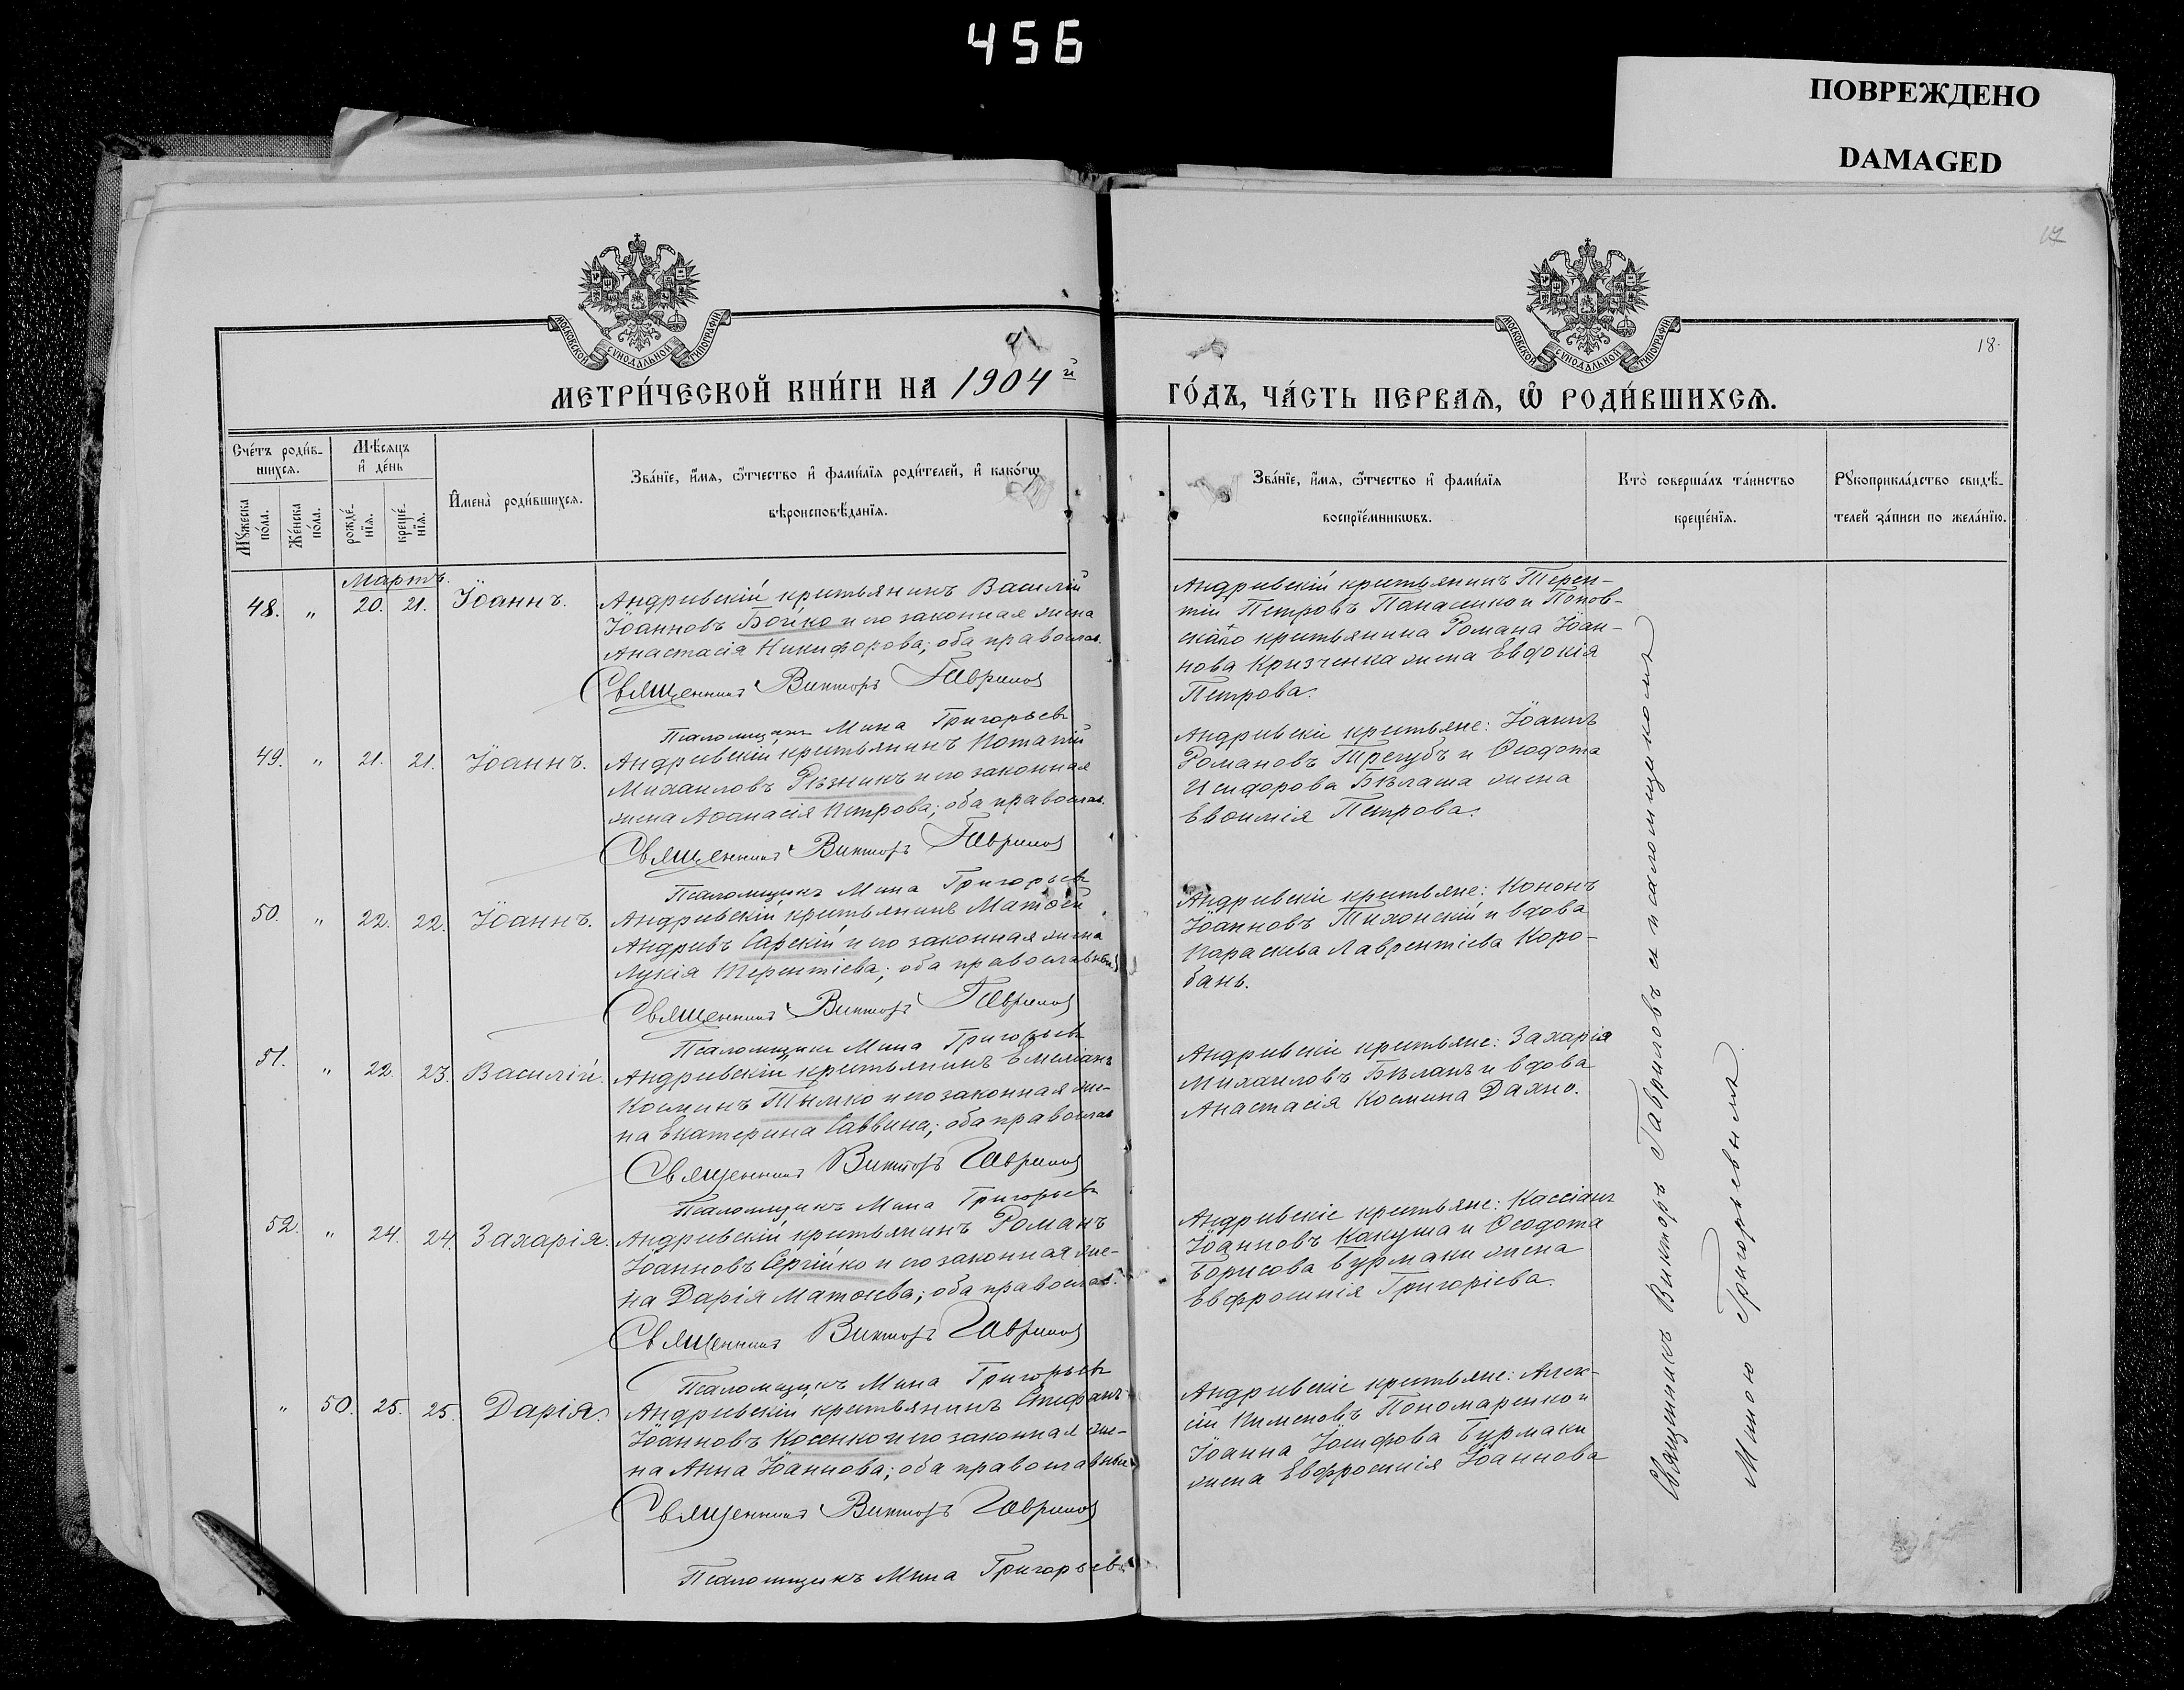 456
ПОВРЕЖДЕНО
DAMAGED
17
18.
МОСКОВСКОЙ СѴНОДАЛЬНОЙ ТИПОГРАФІИ
МОСКОВСКОЙ СѴНОДАЛЬНОЙ ТИПОГРАФІИ
МЕТРИ́ЧЕСКОЙ КНИ́ГИ НА 1904й
ГО́ДЪ, ЧА́СТЬ ПЕРВАЯ, Ѡ РОДИ́ВШИХСЯ.
Сче́тъ роди́в-
шихся.
Мꙋ́жеска по́ла.
Же́нска по́ла.
Мѣ́сяцъ и де́нь
рожде́-
нїя.
креще́-
нїя.
Имена̀ роди́вшихся.
Зва́нїе, и́мя, ѻ҆́тчество и фами́лїя роди́телей, и како́гѡ
вѣроисповѣ́данїя.
Зва́нїе, и́мя, ѻ҆́тчество и фами́лїя
воспрїе́мникѡвъ.
Кто̀ соверша́лъ та́инство
креще́нїя.
Рꙋкоприкла́дство свидѣ́-
телей за́писи по жела́нїю.
Мартъ.
48. " 20. 21. Іоаннъ.
Андреевскій крестьянинъ Василій
Іоанновъ Бойко и его законная жена
Анастасія Никифорова; оба православ.
Священникъ Викторъ Гавриловъ
Псаломщикъ Мина Григорьевъ
Андреевскій крестьянинъ Терен-
тій Петровъ Панасенко и Попов-
скаго крестьянина Романа Іоан-
нова Кризченка жена Евдокія
Петрова.
49. " 21. 21. Іоаннъ.
Андреевскій крестьянинъ Потапій
Михаиловъ Рѣзникъ и его законная
жена Аѳанасія Петрова; оба православ.
Священникъ Викторъ Гавриловъ
Псаломщикъ Мина Григорьевъ
Андреевскіе крестьяне: Іоаннъ
Романовъ Трегубъ и Ѳеодота
Исидорова Бѣлаша жена
Евѳимія Петрова.
50. " 22. 22. Іоаннъ.
Андреевскій крестьянинъ Матѳей
Андреевъ Сарскій и его законная жена
Лукія Терентіева; оба православные
Священникъ Викторъ Гавриловъ
Псаломщикъ Мина Григорьевъ
Андреевскіе крестьяне: Кононъ
Іоанновъ Тихонскій и вдова
Параскева Лаврентіева Коро-
бань.
51. " 22. 23. Василій.
Андреевскій крестьянинъ Емеліанъ
Косминъ Тымко и его законная же-
на Екатерина Саввина; оба православ
Священникъ Викторъ Гавриловъ
Псаломщикъ Мина Григорьевъ
Андреевскіе крестьяне: Захарія
Михаиловъ Бѣланъ и вдова
Анастасія Космина Дахно.
52. " 24. 24. Захарія.
Андреевскій крестьянинъ Романъ
Іоанновъ Сергійко и его законная же-
на Дарія Матѳеева; оба православ.
Священникъ Викторъ Гавриловъ
Псаломщикъ Мина Григорьевъ
Андреевскіе крестьяне: Кассіанъ
Іоанновъ Какуша и Ѳеодота
Борисова Бурмаки жена
Евфросинія Григоріева.
" 50. 25. 25. Дарія.
Андреевскій крестьянинъ Стефанъ
Іоанновъ Косенко и его законная же-
на Анна Іоаннова; оба православные
Священникъ Викторъ Гавриловъ
Псаломщикъ Мина Григорьевъ
Андреевскіе крестьяне: Алек-
сій Пименовъ Пономаренко и
Іоанна Іосифова Бурмаки
жена Евфросинія Іоаннова
Священникъ Викторъ Гавриловъ съ псаломщикомъ
Миною Григорьевымъ.